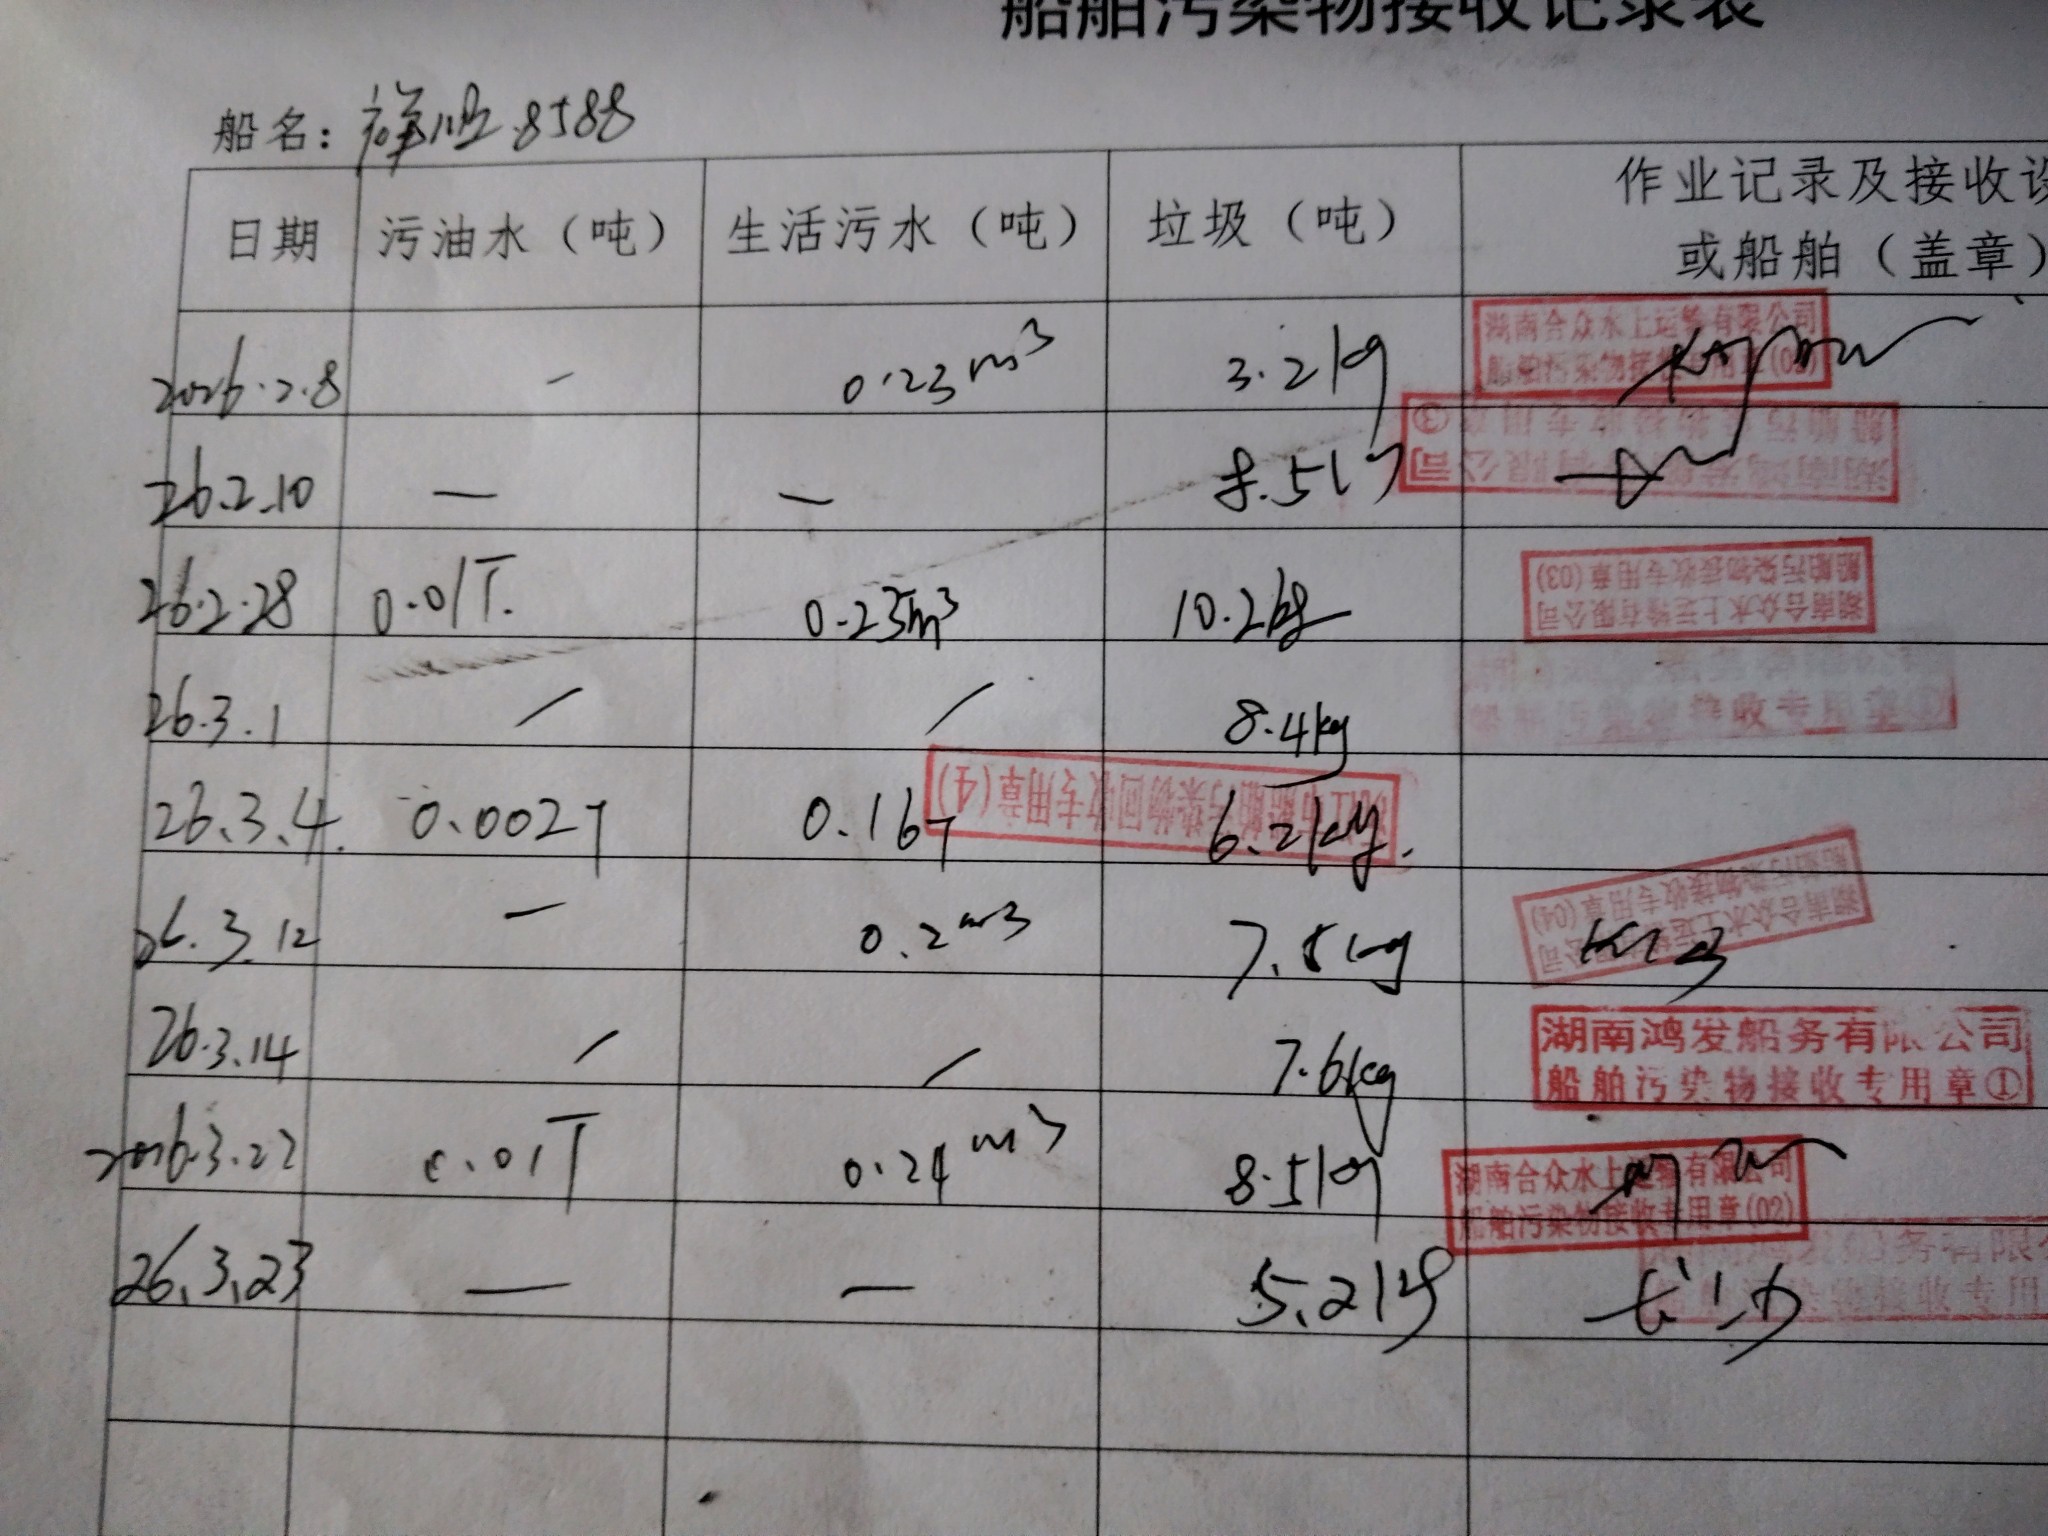 船舶污染物接收记录表
船名：祥顺8588
日期 污油水（吨） 生活污水（吨） 垃圾（吨） 作业记录及接收设
或船舶（盖章）
湖南合众水上运输有限公司
船舶污染物接收专用章
2026.2.8 - 0.23m³ 3.2kg
船舶污染物接收专用章③
26.2.10 — — 8.5kg
船舶污染物接收专用章(03)
湖南合众水上运输有限公司
26.2.28 0.01T. 0.23m³ 10.2kg
接收专用章
26.3.1 / / 8.4kg
船舶污染物回收专用章(4)
26.3.4. 0.002T 0.16T 6.2kg.
船舶污染物接收专用章(04)
湖南合众水上运输有限公司
26.3.12 - 0.2m3 7.8kg
湖南鸿发船务有限公司
船舶污染物接收专用章①
26.3.14 / / 7.6kg
湖南合众水上运输有限公司
船舶污染物接收专用章(02)
2026.3.22 0.01T 0.24m3 8.5kg
26.3.23 — — 5.2kg 长沙